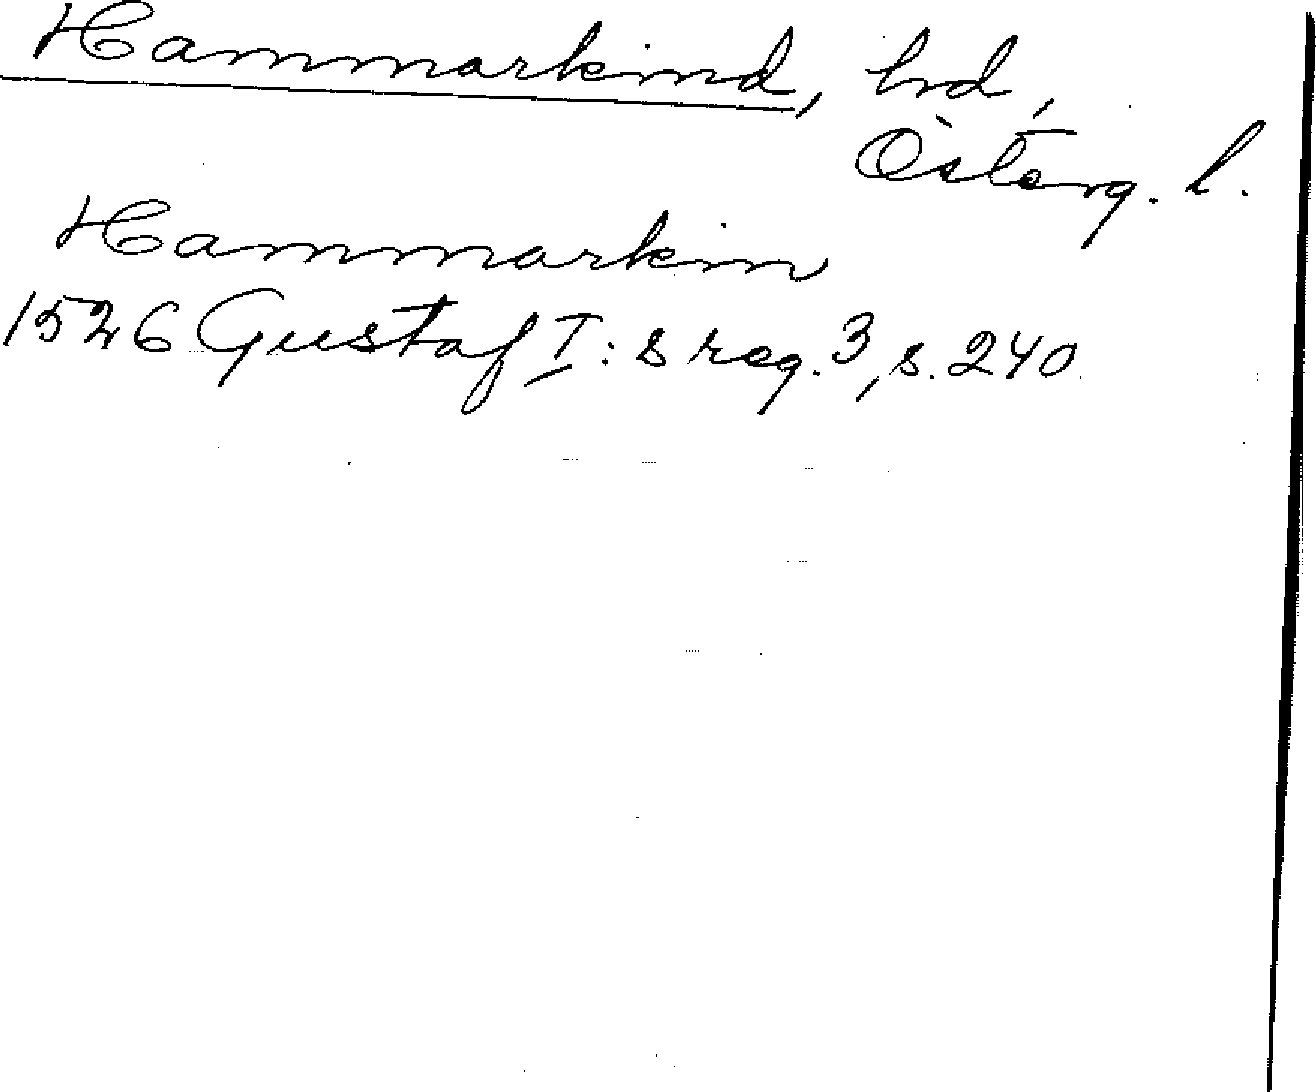 Hammarkind, hd,
Österg. l.
Hammarkin
1526 Gustaf I:s reg. 3, s. 240